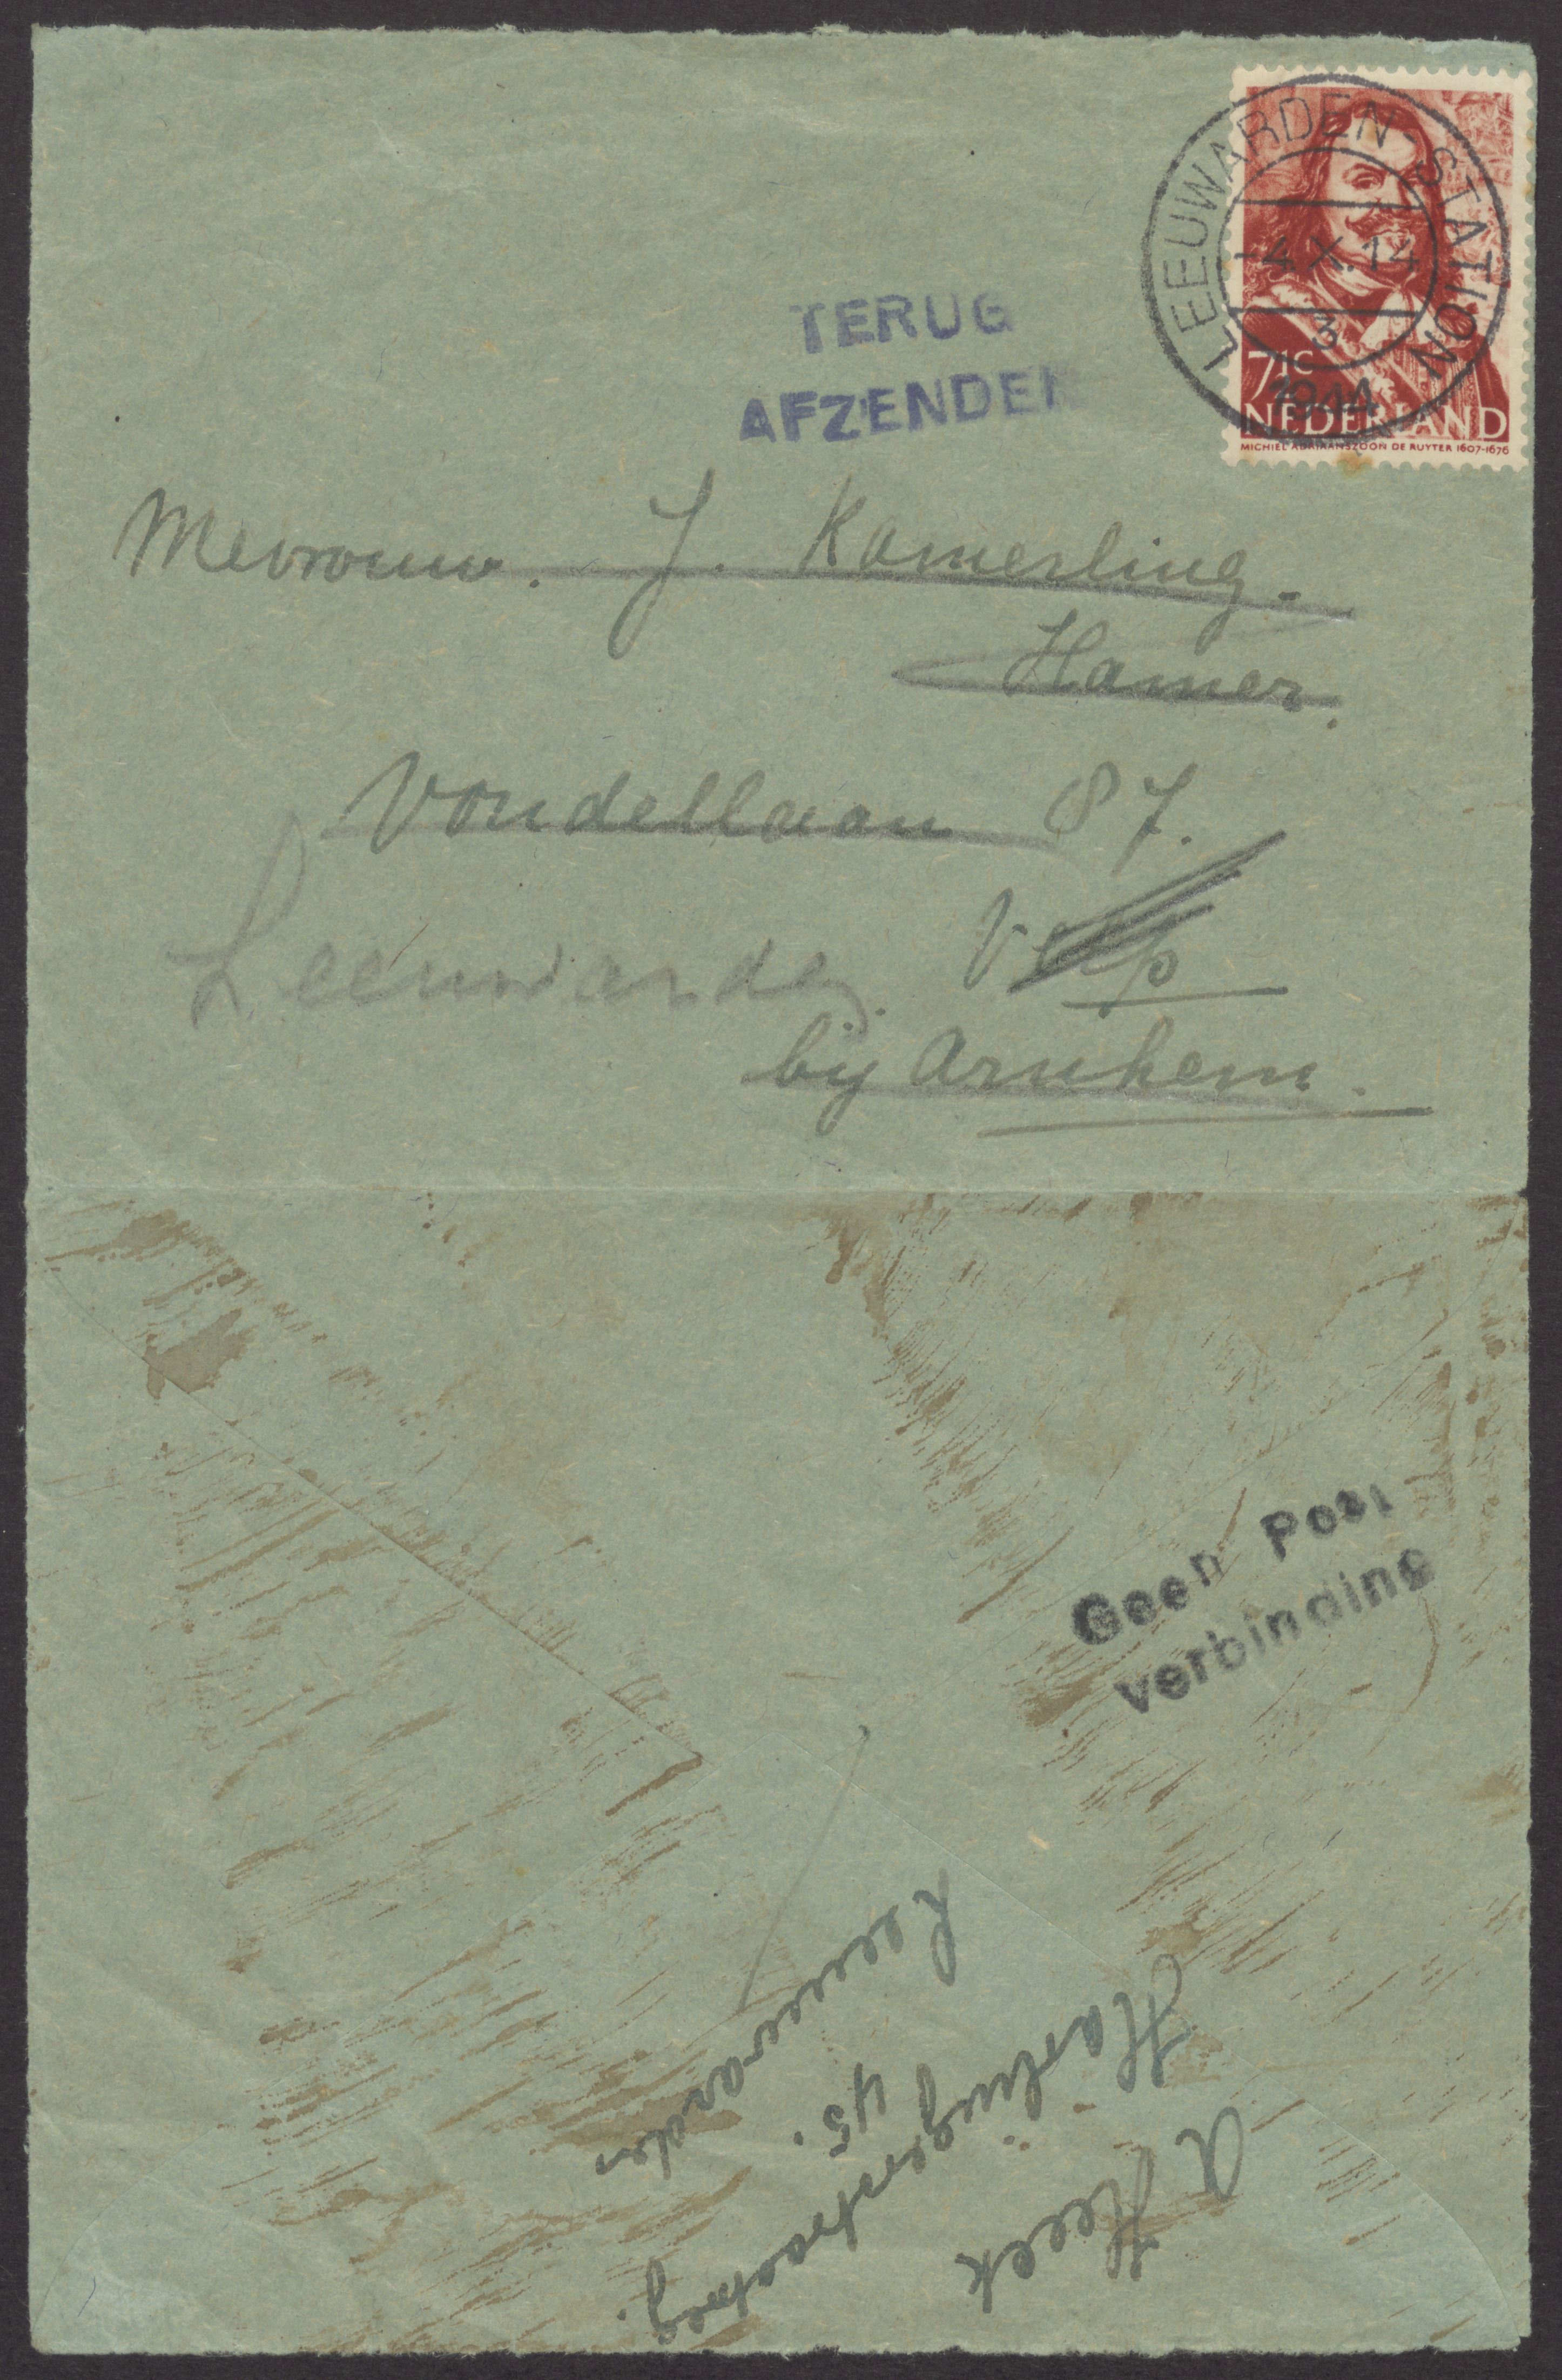 LEEUWARDEN-STATION
-4.X.14
3
1944
7½c
NEDERLAND
MICHIEL ADRIAANSZOON DE RUYTER 1607-1676
TERUG
AFZENDER
Mevrouw. J. Kamerling-
Hamer.
Vondellaan 87.
Velp
Leeuwarden.
bij Arnhem.
Geen Post
verbinding
A Heeck
Harlingerstraatweg.
45.
Leeuwarden